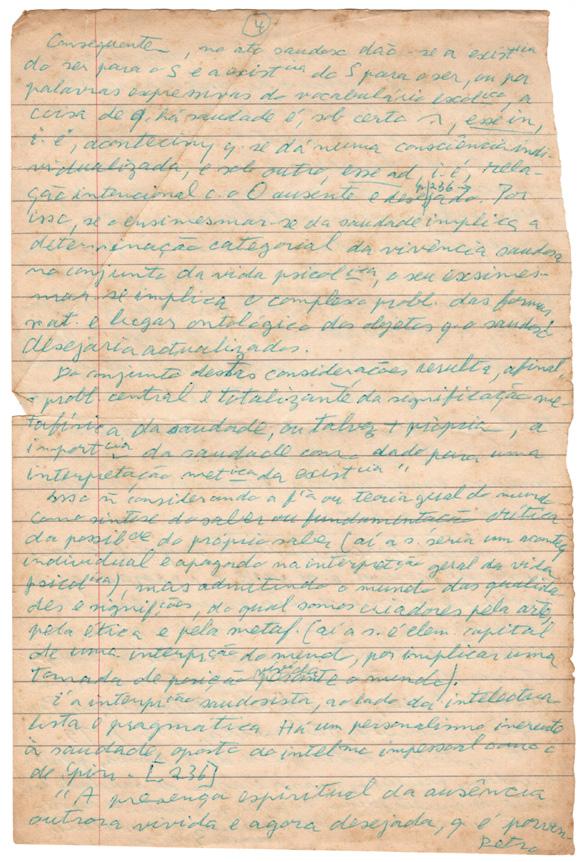 4
Consequentem, no ato saudoso dão-se a existcia
do ser para o S e a existcia do S para o ser, ou por
palavras expressivas do vocabulário escolica, a
coisa de q. há saudade é, sob certo, esse in,
i. é, acontecimy q. se dá numa consciência indi-
vidualizada, e sob outro, esse ad, i. é, rela-
ção intencional c. o O ausente e desejado. Por
p. 236-7
isso, se o ensimesmar-se da saudade implica a
determinação categorial da vivência saudosa
no conjunto da vida psicolica, o seu exsimes-
mar-se implica o complexo probl. das formas
nat. e lugar ontológico dos objetos q. o saudoso
desejaria actualizados.
Do conjunto destas considerações resulta, afinal
o probl. central e totalizante da significação me-
tafísica da saudade, ou talvez + própria, a
importcia da saudade como dado para uma
interpretação metica da existcia"
Isso ñ considerando a fia ou teoria gual do mundo
como síntese do saber ou fundamentação crítica
da possibde do próprio saber (aí a s. seria um acontey
individual e apagado na interpretção geral da vida
psicolica), mas admitindo o mundo das qualida-
des e signifções, do qual somos criadores pela arte,
pela ética e pela metaf. (aí a s. é elem. capital
de uma interpção do mundo, por implicar uma
tomada de posição vivida perante o mundo).
É a interpção saudosista, ao lado da intelectua-
lista e pragmática. Há um personalismo inerente
à saudade, oposto ao intelmo impessoal como o
de Spin. [236]
"A presença espiritual da ausência
outrora vivida e agora desejada, q. é porven-